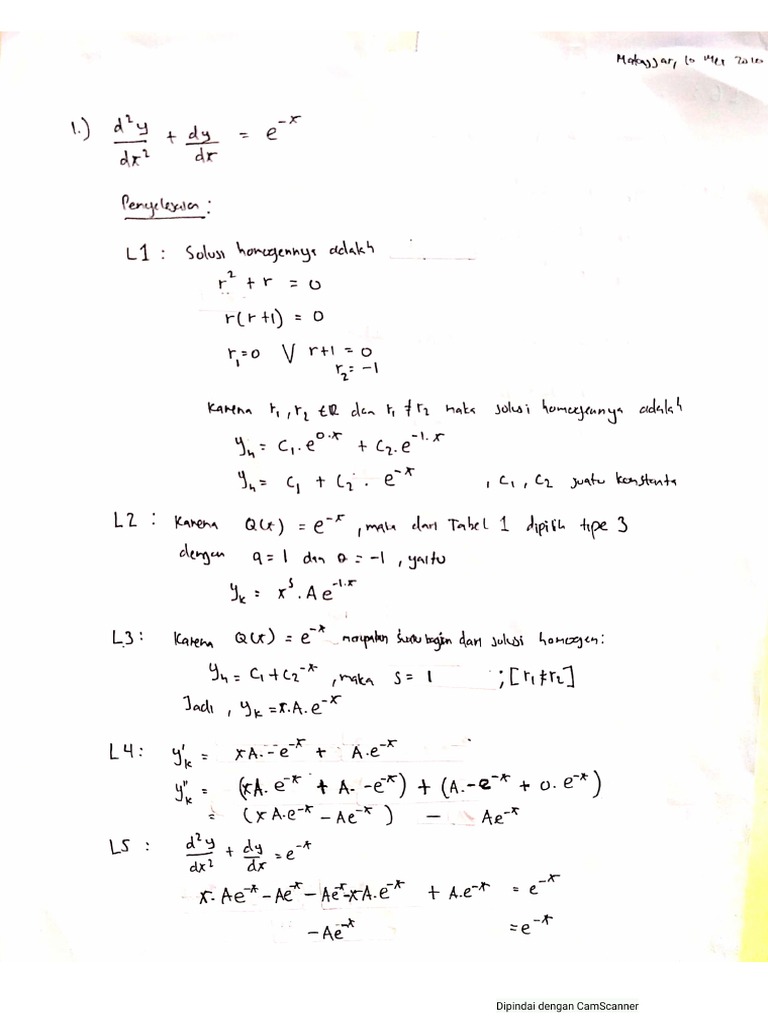 Makassar, 10 Mei 2010
1.) d²y/dx² + dy/dx = e^-x
Penyelesaian :
L1 : Solusi homogennya adalah
r² + r = 0
r(r+1) = 0
r₁=0 V r+1 = 0
r₂= -1
Karena r₁, r₂ ∈ R dan r₁ ≠ r₂ maka solusi homogennya adalah
y_h = C₁.e^0.x + C₂.e^-1.x
y_h = C₁ + C₂ . e^-x , C₁, C₂ suatu konstanta
L2 : Karena Q(x) = e^-x, maka dari Tabel 1 dipilih tipe 3
dengan q = 1 dan a = -1, yaitu
y_k = x^s . A e^-1.x
L3 : Karena Q(x) = e^-x merupakan suatu bagian dari solusi homogen:
y_h = C₁ + C₂^-x, maka s = 1 ; [r₁≠r₂]
Jadi, y_k = x.A.e^-x
L4 : y'_k = xA.-e^-x + A.e^-x
y''_k = (xA.e^-x + A.-e^-x) + (A.-e^-x + 0.e^-x)
= (xA.e^-x - Ae^-x) - Ae^-x
L5 : d²y/dx² + dy/dx = e^-x
x.Ae^-x - Ae^-x - Ae^-x - xA.e^-x + A.e^-x = e^-x
-Ae^-x = e^-x
Dipindai dengan CamScanner